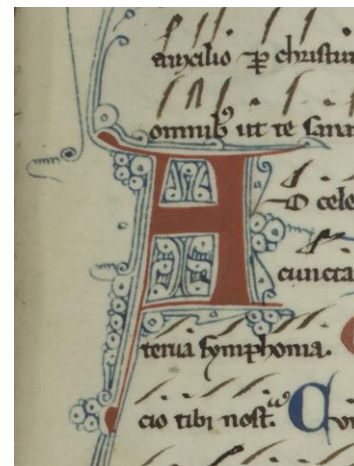 auxilio ꝑ christum
omnibꝰ ut te sana
AD cele
cuncta
terua symphonia.
cio tibi nost.ͣ Cui